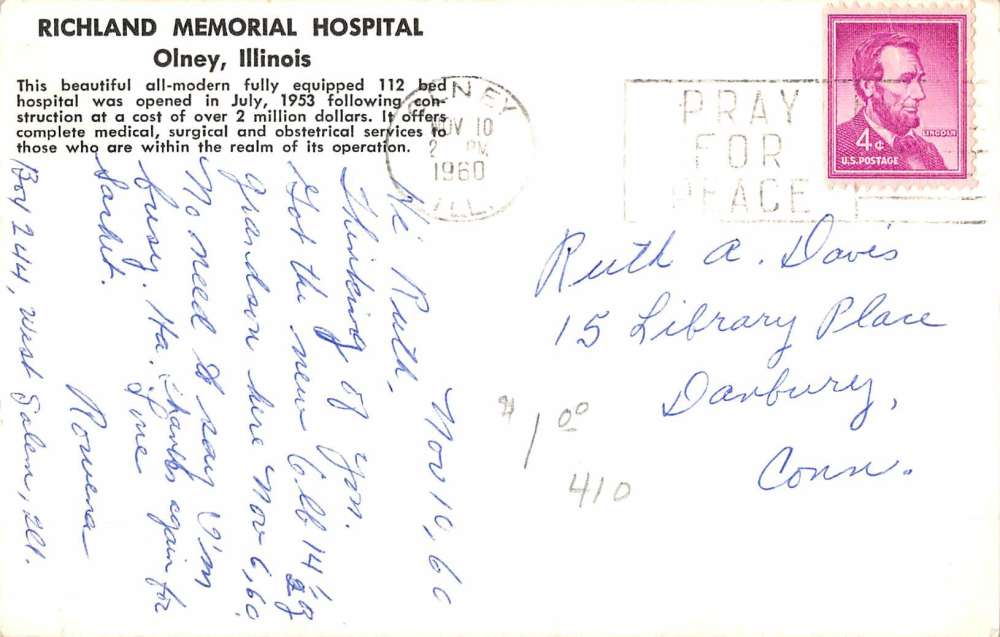 RICHLAND MEMORIAL HOSPITAL
Olney, Illinois
This beautiful all-modern fully equipped 112 bed
hospital was opened in July, 1953 following con-
struction at a cost of over 2 million dollars. It offers
complete medical, surgical and obstetrical services to
those who are within the realm of its operation.
OLNEY
NOV 10
2 PM
1960
ILL.
PRAY
FOR
PEACE
LINCOLN
4¢
U.S. POSTAGE
Nov 10, 60
Hi Ruth,
Thinking of you.
Got the new 6 lb 14
grandson here Nov 6, 60
No need to say I'm
busy. Ha. Thanks again for
Love
Rowena
Box 244, West Salem, Ill.
Ruth A. Davis
15 Library Place
Danbury,
Conn.
$1.00
410